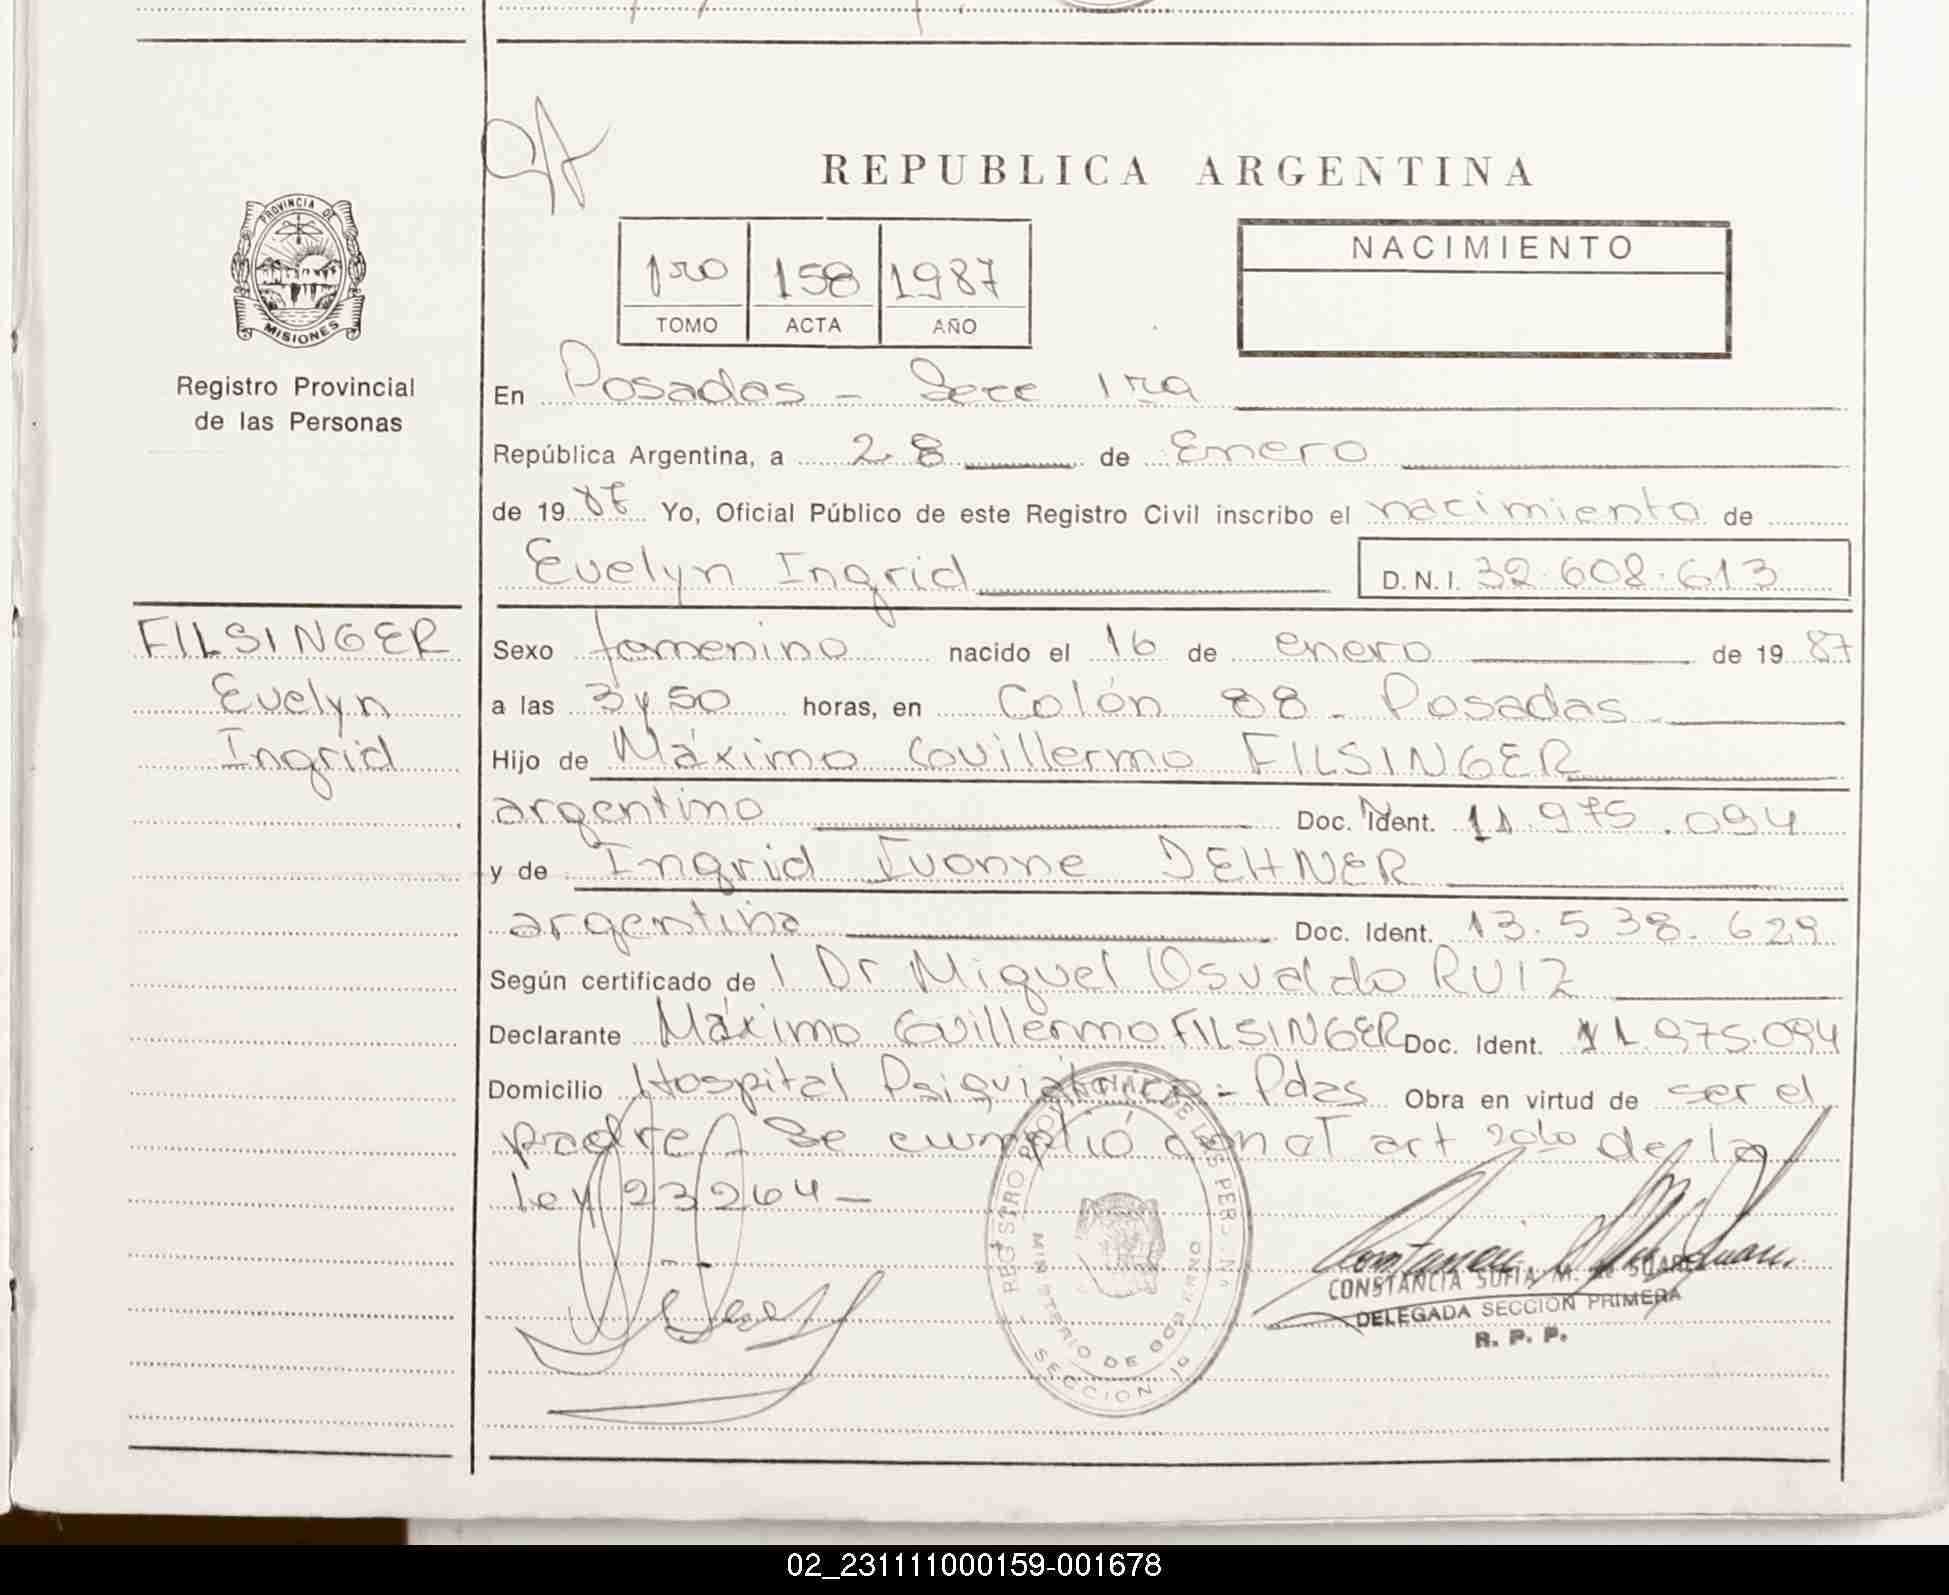 REPUBLICA ARGENTINA
PROVINCIA DE
MISIONES
Registro Provincial
de las Personas
1ro 158 1987
TOMO ACTA AÑO
NACIMIENTO
En Posadas - Secc 1ra
República Argentina, a 28 de Enero
de 19 87 Yo, Oficial Público de este Registro Civil inscribo el nacimiento de
Evelyn Ingrid D.N.I. 32.608.613
FILSINGER
Evelyn
Ingrid
Sexo femenino nacido el 16 de enero de 19 87
a las 3 y 50 horas, en Colón 88 - Posadas
Hijo de Máximo Guillermo FILSINGER
argentino Doc. Ident. 11.975.094
y de Ingrid Ivonne DEHNER
argentina Doc. Ident. 13.538.629
Según certificado de Dr Miguel Osvaldo RUIZ
Declarante Máximo Guillermo FILSINGER Doc. Ident. 11.975.094
Domicilio Hospital Psiquiátrico - Pdas Obra en virtud de ser el
padre Se cumplió con el art de la
ley 23264 -
REGISTRO PROVINCIAL DE LAS PERSONAS
MINISTERIO DE GOBIERNO
SECCION 1a
CONSTANCIA SOFIA M. de SUAREZ
DELEGADA SECCION PRIMERA
R. P. P.
02_231111000159-001678